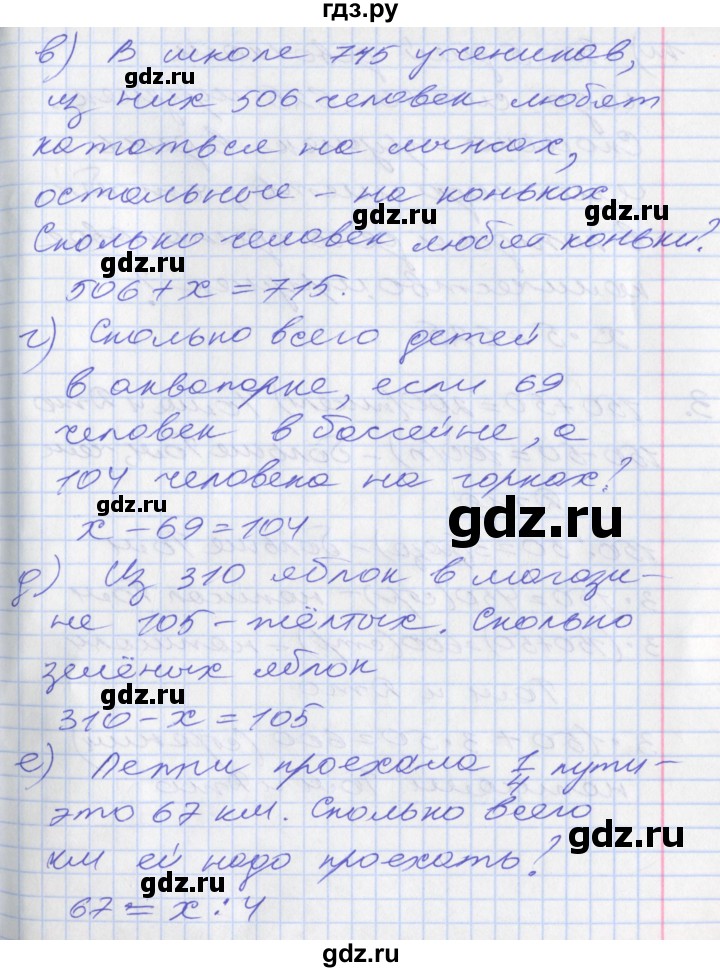 гдз.ру
в) В школе 715 учеников,
gdz.ru
из них 506 человек любят
кататься на лыжах,
остальные – на коньках
gdz.ru
gdz.ru
Сколько человек любят коньки?
gdz.ru
506 + x = 715.
г) Сколько всего детей
gdz.ru
в аквапарке, если 69
человек в бассейне, а
104 человека на горках?
gdz.ru
gdz.ru
x – 69 = 104
д) Из 310 яблок в магази-
gdz.ru
не 105 – жёлтых. Сколько
зелёных яблок
gdz.ru
310 – x = 105
е) Пеппи проехала 1/4 пути –
gdz.ru
это 67 км. Сколько всего
gdz.ru
км ей надо проехать?
gdz.ru
67 = x : 4
gdz.ru